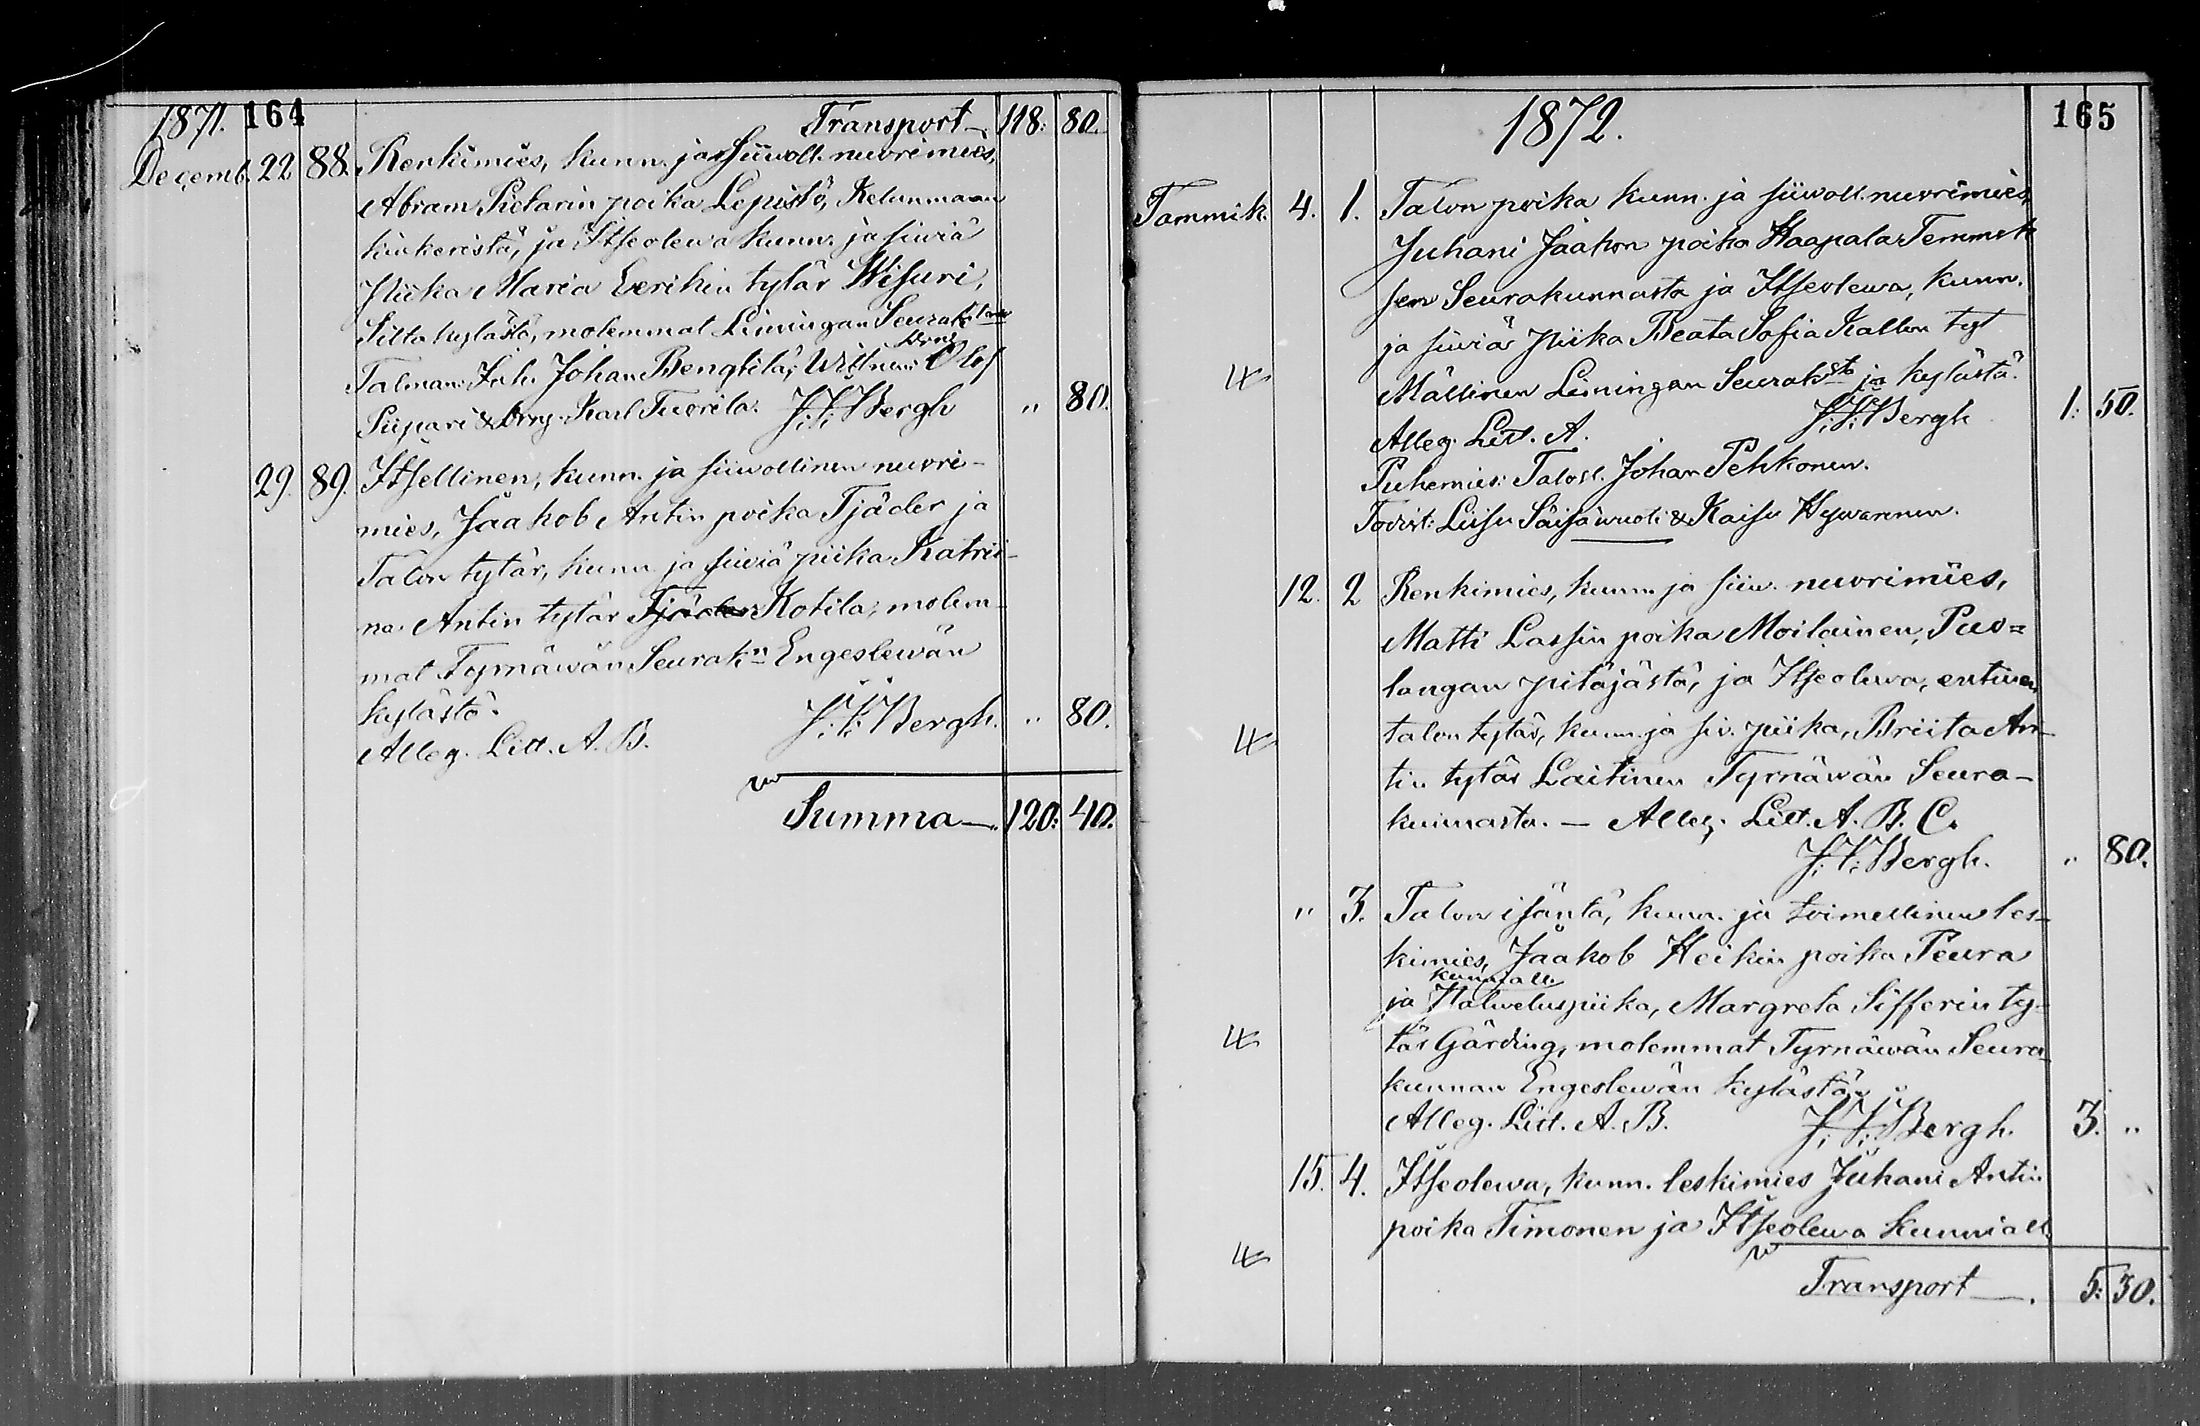 1871. 164
Transport 118: 80.
Decemb. 22 88. Renkimies, kunn. ja siiwoll. nuorimies,
Abram Pietarin poika Lepistö, Ketunmaan
kinkeristä, ja Itseolewa kunn. ja siwiä
Piika Maria Eerikin tytär Wisuri,
Silta kylästä, molemmat Limingan Seurak:tan
Talman: Inh. Johan Bengtilä; Wittnen: Olof
Piipari & Drng. Karl Tuorila. J. F. Bergh " 80.
29. 89. Itsellinen, kunn. ja siiwollinen nuori-
mies, Jaakob Antin poika Tjäder ja
Talon tytär, kunn. ja siwiä piika Katrii-
na Antin tytär Tjäder Kotila, molem-
mat Tyrnäwän Seurak:n Engeslewän
kylästä. J. F. Bergh. " 80.
Alleg. Litt. A. B.
Summa 120: 40.
1872. 165
Tammik. 4. 1. Talon poika kunn. ja siiwoll. nuorimies,
Juhani Jaakon poika Haapala Temmek
sen Seurakunnasta ja Itseolewa, kunn.
ja siwiä piika Beata Sofia Kallen tyt
Mällinen Limingan Seurak:sta ja kylästä.
Alleg. Litt. A. J. F. Bergh 1: 50.
Puhemies: Talosl. Johan Pehkonen.
Todist: Liisu Säisäwuoti & Kaisu Hywärinen.
12. 2 Renkimies, kunn. ja siiw. nuorimies,
Matti Lassin poika Moilainen, Puo=
langan pitäjästä, ja Itseolewa, entinen
talon tytär, kunn. ja siv. piika, Briita An-
tin tytär Laitinen Tyrnäwän Seura-
kunnasta. — Alleg. Litt. A. B. C.
J. F. Bergh. " 80.
" 3. Talon isäntä, kunn. ja toimellinen les-
kimies, Jaakob Heikin poika Peura
kunniall.
ja Palweluspiika, Margreta Sifferin ty-
tär Gärding, molemmat Tyrnäwän Seura-
kunnan Engeslewän kylästä.
Alleg. Litt. A. B. J. F. Bergh. 3. "
15. 4. Itseolewa, kunn. leskimies Juhani Antin
poika Timonen ja Itseolewa kunniall.
Transport 5: 30.